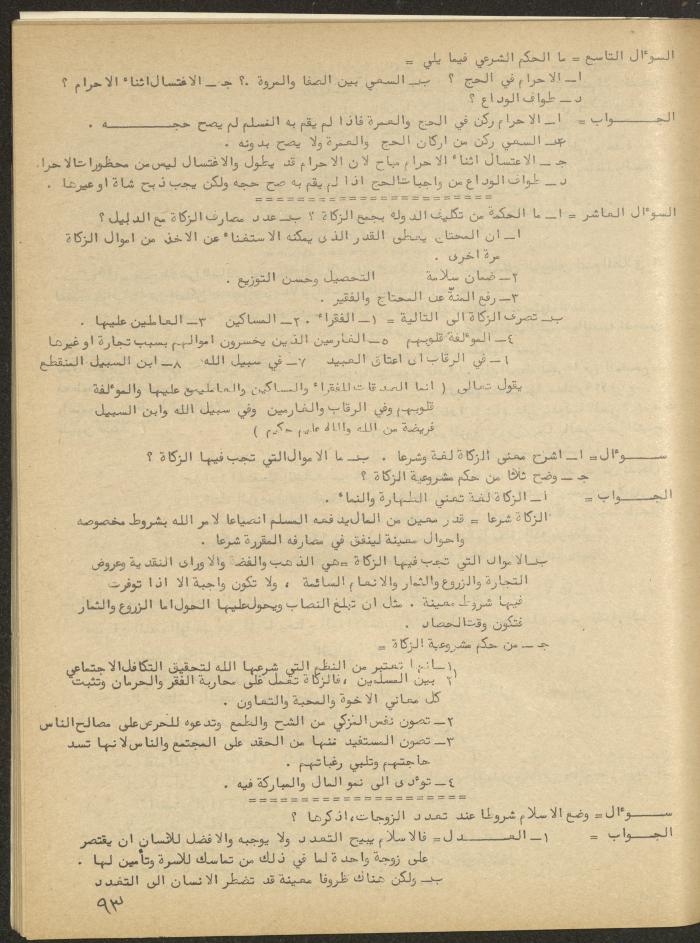 السوءال التاسع = ما الحكم الشرعي فيما يلي =
ا_ الاحرام في الحج ؟ ب_ السعي بين الصفا والمروة .؟ ج_ الاغتسال اثناء الاحرام ؟
د_ طواف الوداع ؟
الجـــواب = ا_ الاحرام ركن في الحج والعمرة فاذا لم يقم به المسلم لم يصح حجـــه .
ب_ السعي ركن من اركان الحج والعمرة ولا يصح بدونه .
ج_ الاغتسال اثناء الاحرام مباح لان الاحرام قد يطول والاغتسال ليس من محظورات الاحرا
د_ طواف الوداع من واجبات الحج اذا لم يقم به صح حجه ولكن يجب ذبح شاة او غيرها .
=========================
السوءال العاشر = ا_ ما الحكمة من تكليف الدوله بجمع الزكاة ؟ ب_ عدد مصارف الزكاة مع الدليل ؟
ا_ ان المحتاج يعطى القدر الذى يمكنه الاستغناء عن الاخذ من اموال الزكاة
مرة اخرى .
٢_ ضمان سلامة التحصيل وحسن التوزيع .
٣_ رفع المنة عن المحتاج والفقير .
ب_ تصرف الزكاة الى التالية = ١_ الفقراء . ٢_ المساكين ٣_ العاملين عليها .
٤_ الموءلفة قلوبهم ٥_ الغارمين الذين يخسرون اموالهم بسبب تجارة او غيرها
٦_ في الرقاب اى اعتاق العبيد ٧_ في سبيل الله ٨_ ابن السبيل المنقطع
يقول تعالى ( انما الصدقات للفقراء والمساكين والعاملين عليها والموءلفة
قلوبهم وفي الرقاب والغارمين وفي سبيل الله وابن السبيل
فريضة من الله والله عليم حكيم )
ســـوءال= ا_ اشرح معنى الزكاة لغة وشرعا . ب_ ما الاموال التي تجب فيها الزكاة ؟
ج_ وضح ثلاثا من حكم مشروعية الزكاة ؟
الجـــواب = ا_ الزكاة لغة تعني الطهارة والنماء .
الزكاة شرعا = قدر معين من المال يدفعه المسلم انصياعا لامر الله بشروط مخصوصه
واحوال معينة لينفق في مصارفه المقررة شرعا .
ب_ الاموال التي تجب فيها الزكاة =هي الذهب والفضة والاوراق النقدية وعروض
التجارة والزروع والثمار والانعام السائمة ، ولا تكون واجبة الا اذا توفرت
فيها شروط معينة . مثل ان تبلغ النصاب ويحول عليها الحول اما الزروع والثمار
فتكون وقت الحصاد .
ج_ من حكم مشروعية الزكاة =
١_ انها تعتبر من النظم التي شرعها الله لتحقيق التكافل الاجتماعي
بين المسلمين ، فالزكاة تعمل على محاربة الفقر والحرمان وتثبت
كل معاني الاخوة والمحبة والتعاون .
٢_ تصون نفس المزكي من الشح والطمع وتدعوه للحرص على مصالح الناس
٣_ تصون المستفيد منها من الحقد على المجتمع والناس لانها تسد
حاجتهم وتلبي رغباتهم .
٤_ توءدى الى نمو المال والمباركة فيه .
=======================
ســـوءال= وضع الاسلام شروطا عند تعدد الزوجات ، اذكرها ؟
الجـــواب = ١_ العـــدل= فالاسلام يبيح التعدد ولا يوجبه والافضل للانسان ان يقتصر
على زوجة واحدة لما في ذلك من تماسك للاسرة وتأمين لها .
ب_ ولكن هناك ظروفا معينة قد تضطر الانسان الى التعدد
٩٣